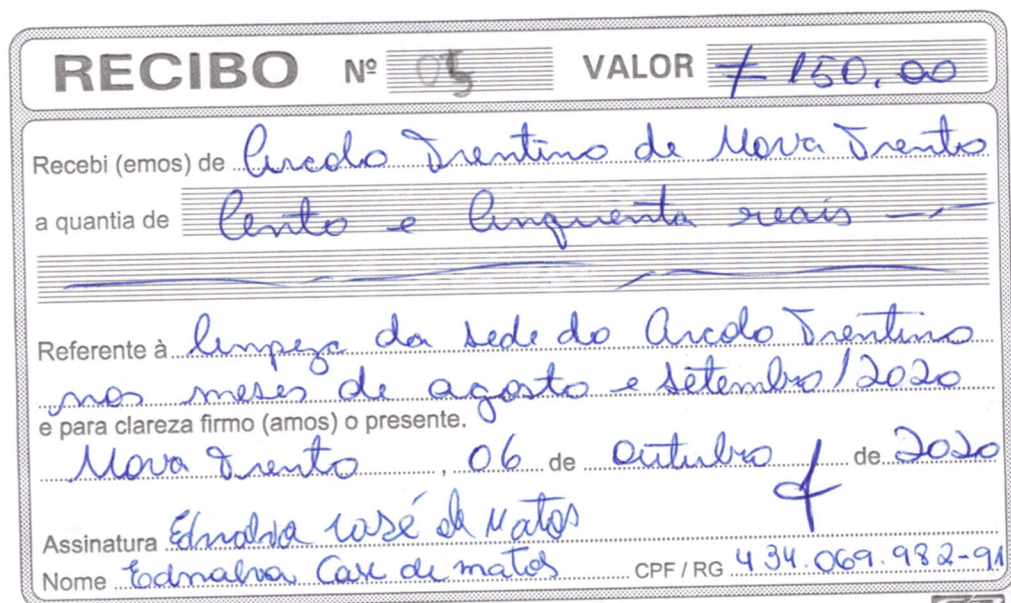 RECIBO Nº 05 VALOR 150,00
Recebi (emos) de Circolo Trentino de Nova Trento
a quantia de Cento e Cinquenta reais
Referente à limpeza da sede do Circolo Trentino
nos meses de agosto e setembro/2020
e para clareza firmo (amos) o presente.
Nova Trento, 06 de Outubro de 2020
Assinatura Ednalva José de Matos
Nome Ednalva Case de matos CPF / RG 434.069.982-91